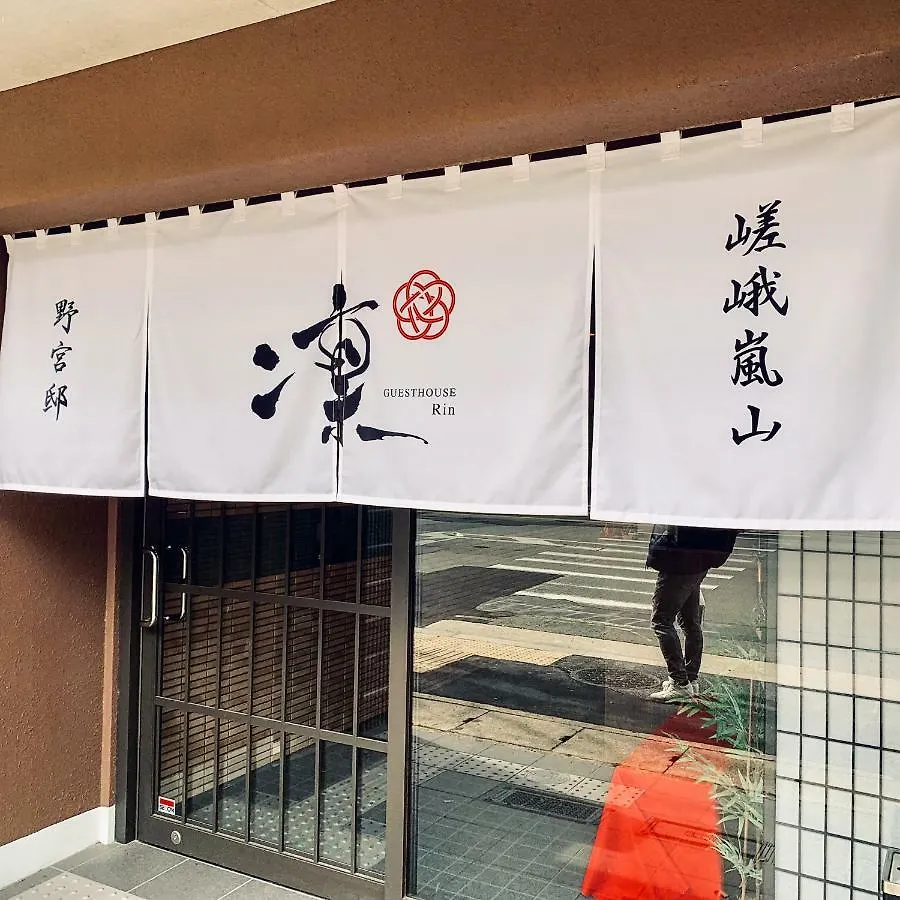 嵯峨嵐山
凛
GUESTHOUSE
Rin
野宮邸